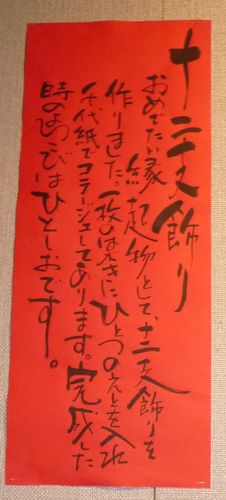 十二支飾り
おめでたい縁起物として、十二支飾りを
作りました。一枚のはがきにひとつのえとを入れ
千代紙でコラージュしてあります。完成した
時のよろこびはひとしおです。